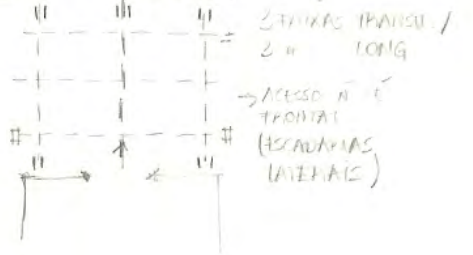 3 FAIXAS TRANSV. /
3 " LONG
→ ACESSO Ñ É
FRONTAL
(ESCADARIAS
LATERAIS)